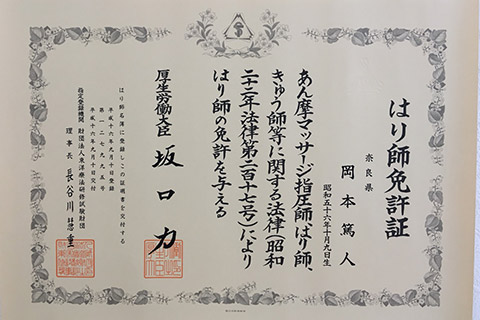 はり師免許証
奈良県
岡本篤人
昭和五十六年十月九日生
あん摩マッサージ指圧師、はり師、
きゅう師等に関する法律(昭和
二十二年法律第二百十七号)により
はり師の免許を与える
厚生労働大臣 坂口力
はり師名簿に登録しこの証明書を交付する
平成十六年九月十日登録
第一二七九五号
平成十六年九月十日交付
指定登録機関 財団法人東洋療法研修試験財団
理事長 長谷川慧重